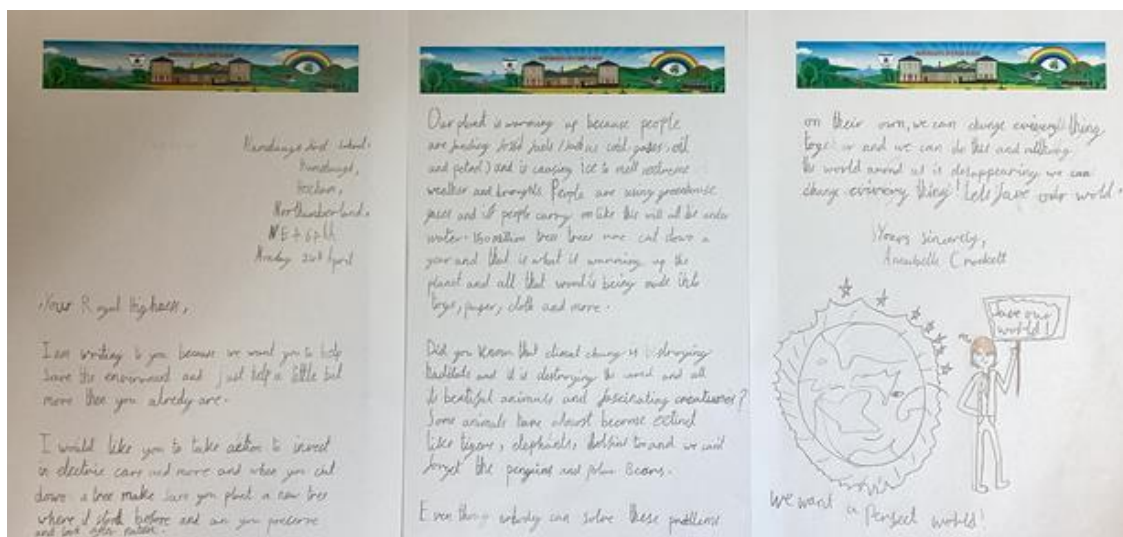 Humshaugh First School,
Humshaugh,
Hexham,
Northumberland,
NE46
Monday 26th April
Your Royal Highness,
I am writing to you because we want you to help
save the enviroment and just help a little bit
more then you alredy are.
I would like you to take action to invest
in electric cars and more and when you cut
down a tree make sure you plant a new tree
where it stood before and can you preserve
and look after nature.
Our planet is warming up because people
are fossil fuels (such as coal, gases, oil
and petrol) and is causing ice to melt extreme
weather and People are using greenhouse
gases and if people carry on like this will all be under
water. trees trees are cut down a
year and that is what is warming up the
planet and all that wood is being made into
toys, paper, cloth and more.
Did you know that climat chang is distroying
habitats and it is destroying the and all
its beatiful animals and fascinating creatures?
Some animals have almost become extinct
like tigers, elephants, and we cant
forget the penguins and polar Bears.
Even though nobody can solve these problems
on their own, we can change every thing
together and we can do this and
the world around us is desappearing we can
change every thing! Lets save our world.
Yours sincerely,
Annabelle Crockett
Save our
world!
We want a perfect world!